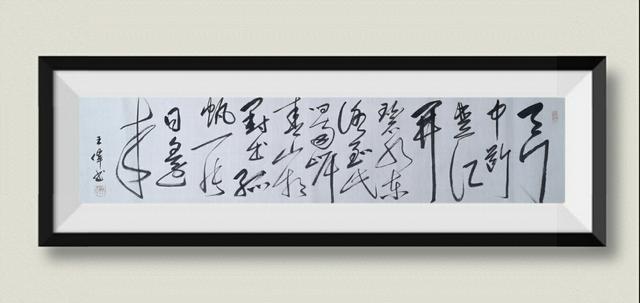 天门
中断
楚江
開
碧水东
流至此
岸
青山相
對出孤
帆一片
日邊
来
王偉书